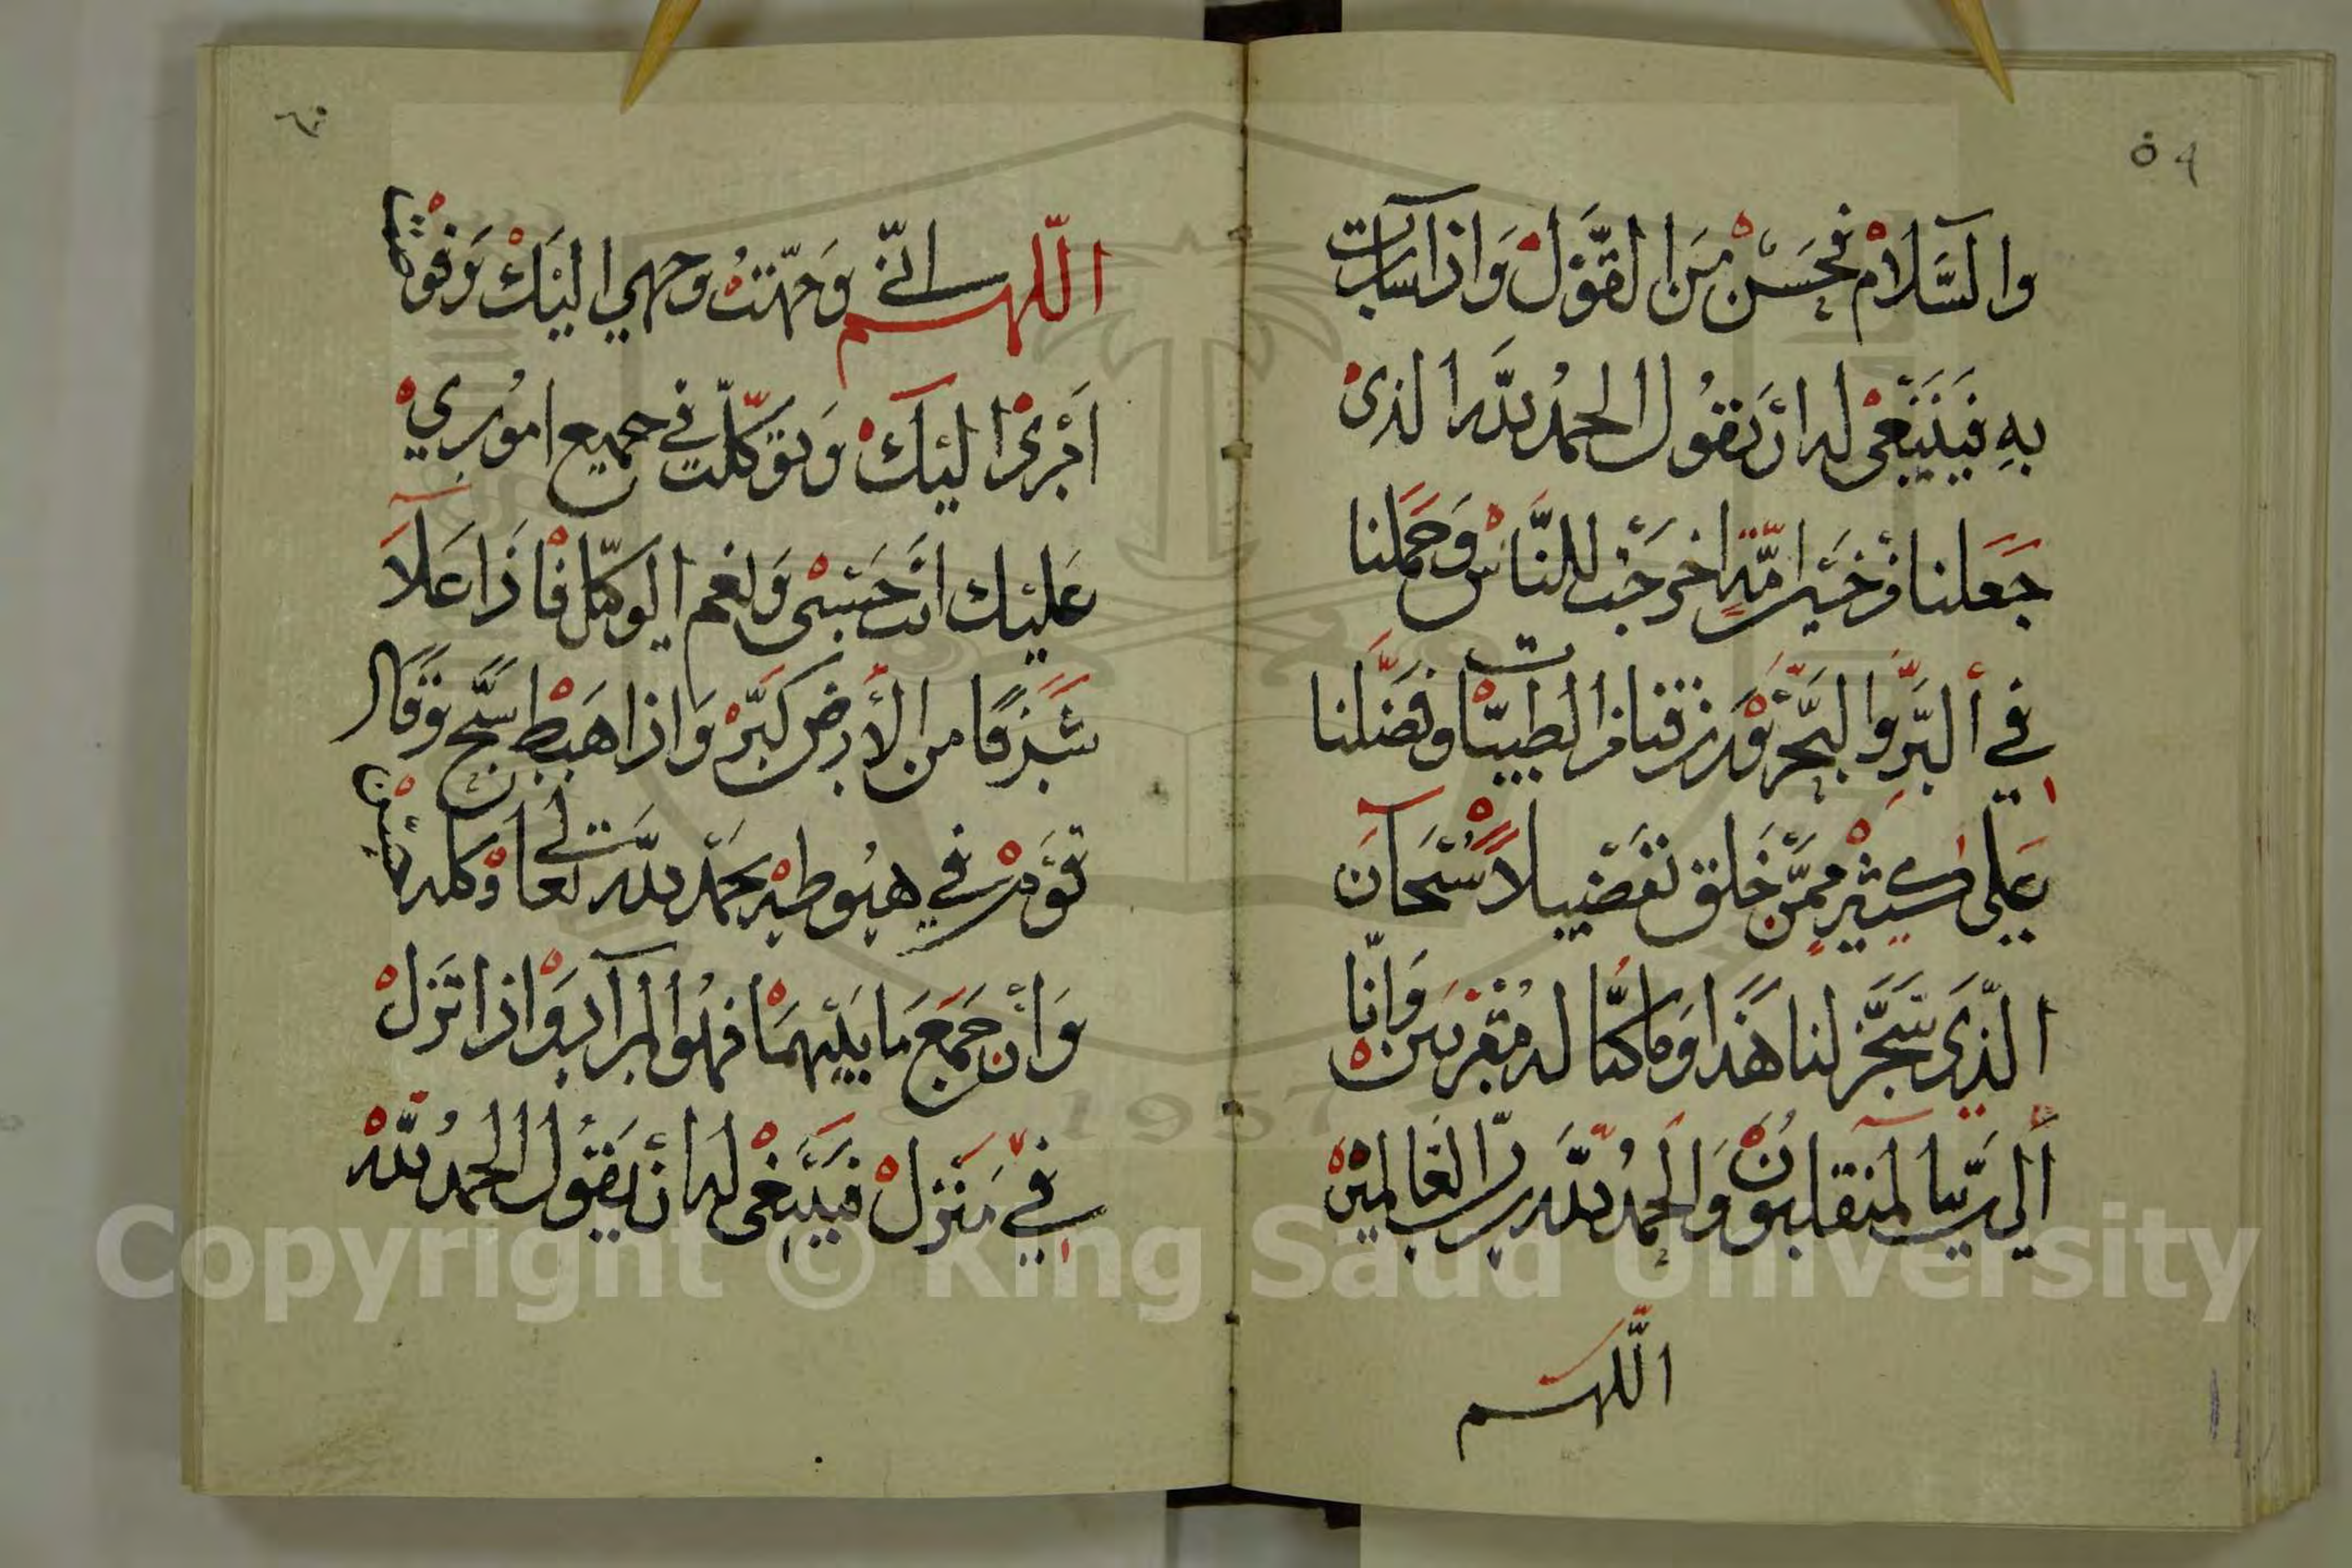 ٥٩
والسَّلَامْ فحَسَنْ مِنَ القَوْلْ وَاذا سارت
بهِ فيَنْبَغىْ له انْ يَقُول الحمدُ للَّه الذىْ
جَعَلنا فى خَيْر امَّةٍ اخرجَت للنَّاسْ وَحَملنا
في البَرِّ والبَحْر وَرزقنا من الطيبات وفضَّلنا
عَلى كثيْرٍ ممَّنْ خَلق تفضيلًا سُبْحَانَ
الّذى سَخَّر لنا هَذا وَما كنَّا له مُقرنين وَانّا
إلى ربّنا لمنقلبُونْ وَالحمدُ للّه ربّ العَالمينْ
اللّهم
٦٠
اللّهم انّى وَجّهْتُ وجهي اليْك وَفوضت
امْرىْ اليْكْ وَتوَكّلت في جميع امُوريْ
عَليْك انتَ حَسْبى وَلنعم الوكيل فاذَا عَلاَ
شَرَفًا من الأرض كبَّرْ وَاذا هَبَطْ سبَّح وَقال
قوَمْ في هبُوطهِ يحمَد للَّه تعَالى وَكله حَسَنْ
وَانْ جَمَعَ مَا بَيْنهمَا فهُوا المرَآد وَاذا نَزلْ
في مَنزلْ فيَنْبَغى لهَ انْ يَقُول الحمدُ للّه
Copyright © King Saud University
1957